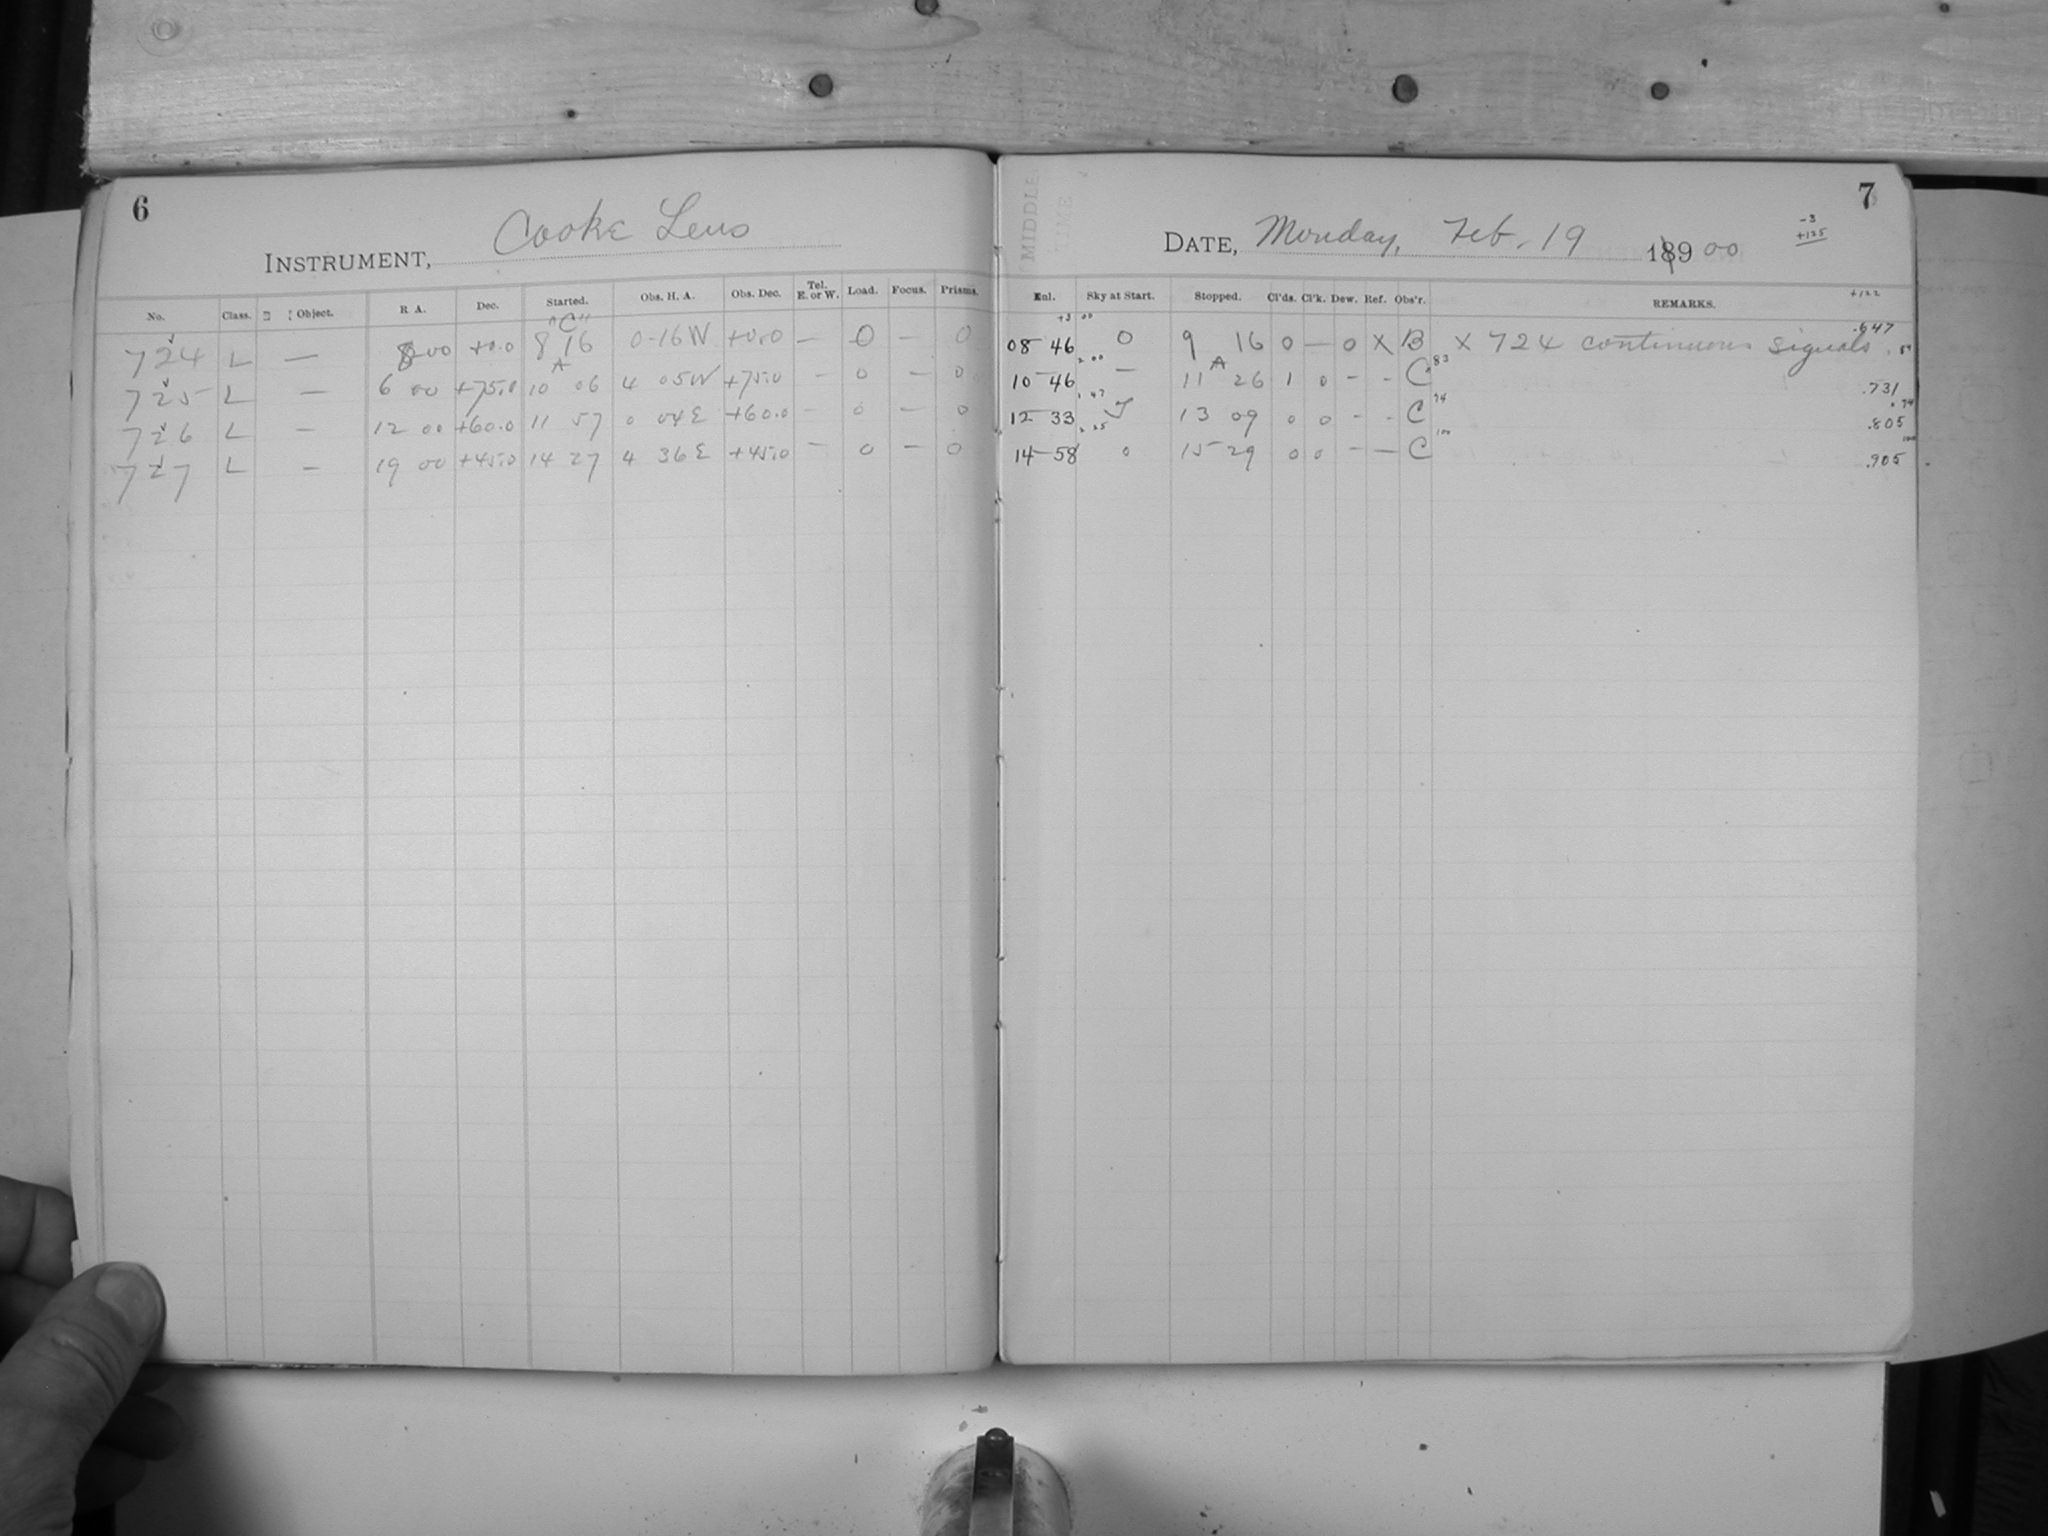 6
INSTRUMENT, Cooke Lens
No. Class. Object. R A. Dec. Started. Obs. H. A. Obs. Dec. Tel. E. or W. Load. Focus. Prisms.
"C"
724 L — 8 00 +0.0 8 16 0-16 W +0.0 — 0 — 0
A
725 L — 6 00 +75.0 10 06 4 05 W +75.0 — 0 — 0
726 L — 12 00 +60.0 11 57 0 04 E +60.0 — 0 — 0
727 L — 19 00 +45.0 14 27 4 36 E +45.0 — 0 — 0
7
MIDDLE
TIME
-3
+125
DATE, Monday, Feb. 19 189 00
+122
Enl. Sky at Start. Stopped. Cl'ds. Cl'k. Dew. Ref. Obs'r. REMARKS.
+3 00
08 46 0 9 16 0 — 0 X B X 724 continuous signals .647
2 00 A 83
10-46 — 11 26 1 0 - - C .731
1 47 74 .74
12-33 13 09 0 0 - - C .805
2 25 100 100
14-58 0 15 29 0 0 - — C .905